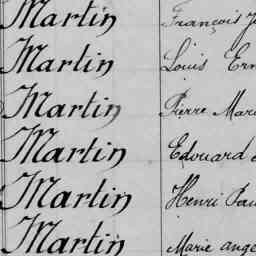 Martin François
Martin Louis
Martin Pierre
Martin Edouard
Martin Henri
Martin Marie